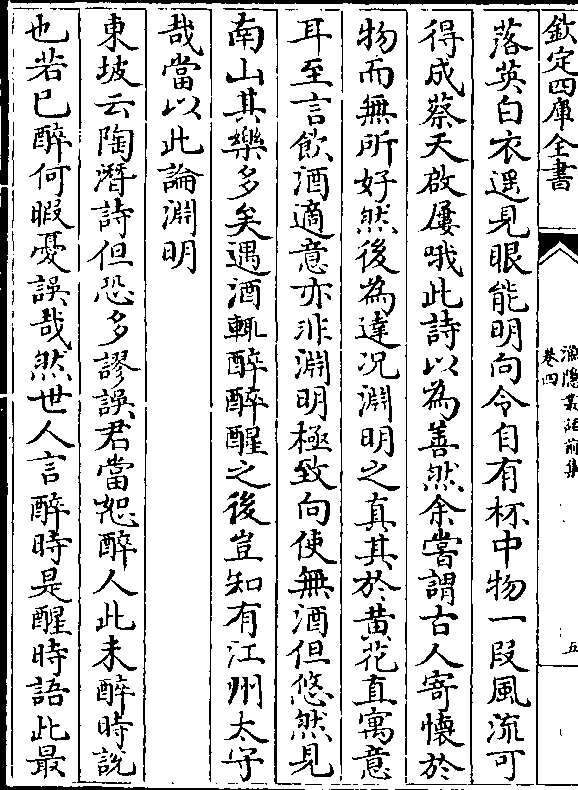 欽定四庫全書
漁隱叢話前集
卷四
五
落英白衣遥見眼能明向令自有杯中物一段風流可
得成蔡天啟屢哦此詩以為善然余嘗謂古人寄懷於
物而無所好然後為達况淵明之真其於黄花直寓意
耳至言飲酒適意亦非淵明極致向使無酒但悠然見
南山其樂多矣遇酒輒醉醉醒之後豈知有江州太守
哉當以此論淵明
東坡云陶潛詩但恐多謬誤君當恕醉人此未醉時説
也若已醉何暇憂誤哉然世人言醉時是醒時語此最